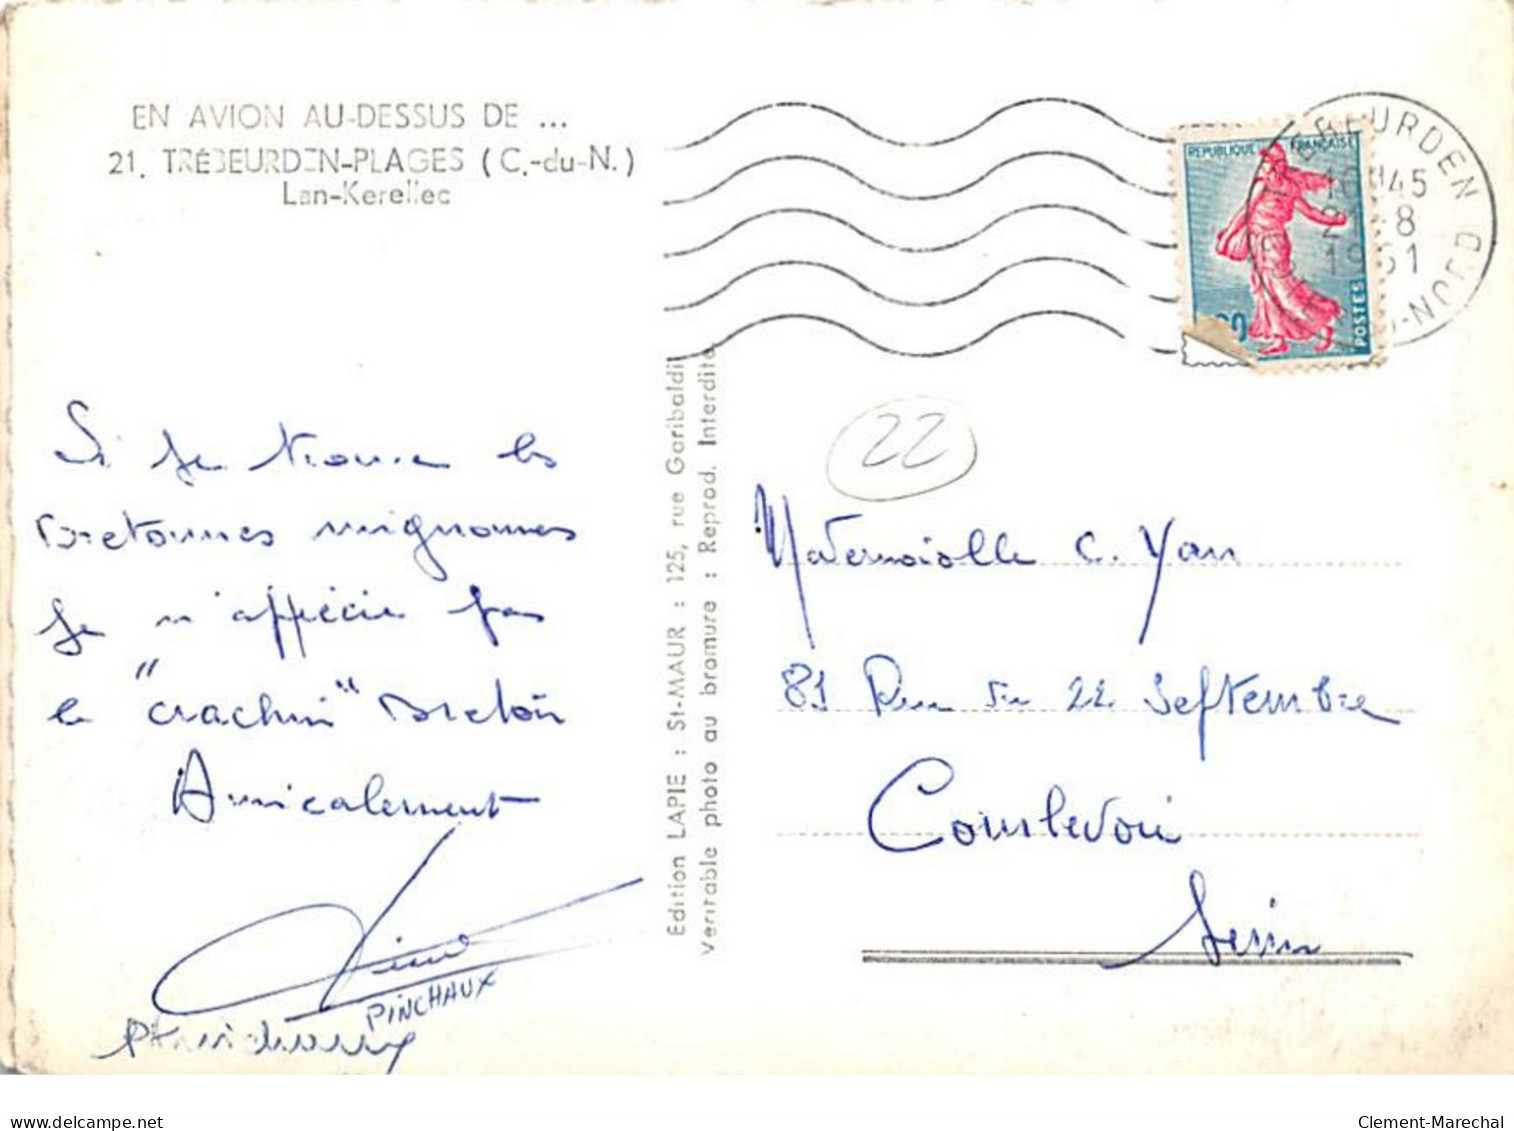 EN AVION AU-DESSUS DE ...
21. TRÉBEURDEN-PLAGES (C.-du-N.)
Lan-Kerellec
REPUBLIQUE FRANÇAISE
POSTES
TREBEURDEN
16H45
-8
1961
COTES-DU-NORD
22
Si je trouve les
bretonnes mignonnes
je n'apprécie pas
le "crachin" breton
Amicalement
PINCHAUX
Edition LAPIE : St-MAUR : 125, rue Garibaldi
Véritable photo au bromure : Reprod. Interdite
Mademoiselle C. Yan
81 Rue du 22 Septembre
Courbevoie
Seine
Clement-Marechal